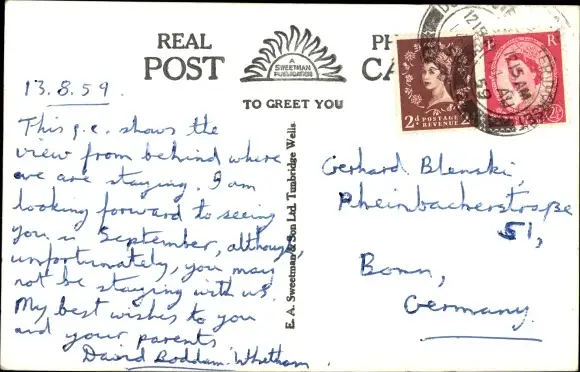 REAL PHOTO
POST CARD
A
SWEETMAN
PUBLICATION
TO GREET YOU
13.8.59.
This p.c. shows the
view from behind where
we are staying. I am
looking forward to seeing
you in September, although,
unfortunately, you may
not be staying with us.
My best wishes to you
and your parents
David Roddam-Whetham.
E. A. Sweetman & Son Ltd. Tunbridge Wells
2d POSTAGE 2d
REVENUE
R
2½d
AU
59
Gerhard Blenski,
Rheinbacherstraße
51,
Bonn,
Germany.